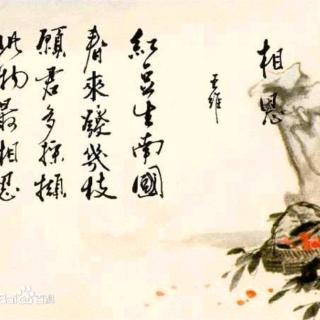 相思
王维
紅豆生南國
春來發幾枝
願君多採擷
此物最相思
Baidu百科